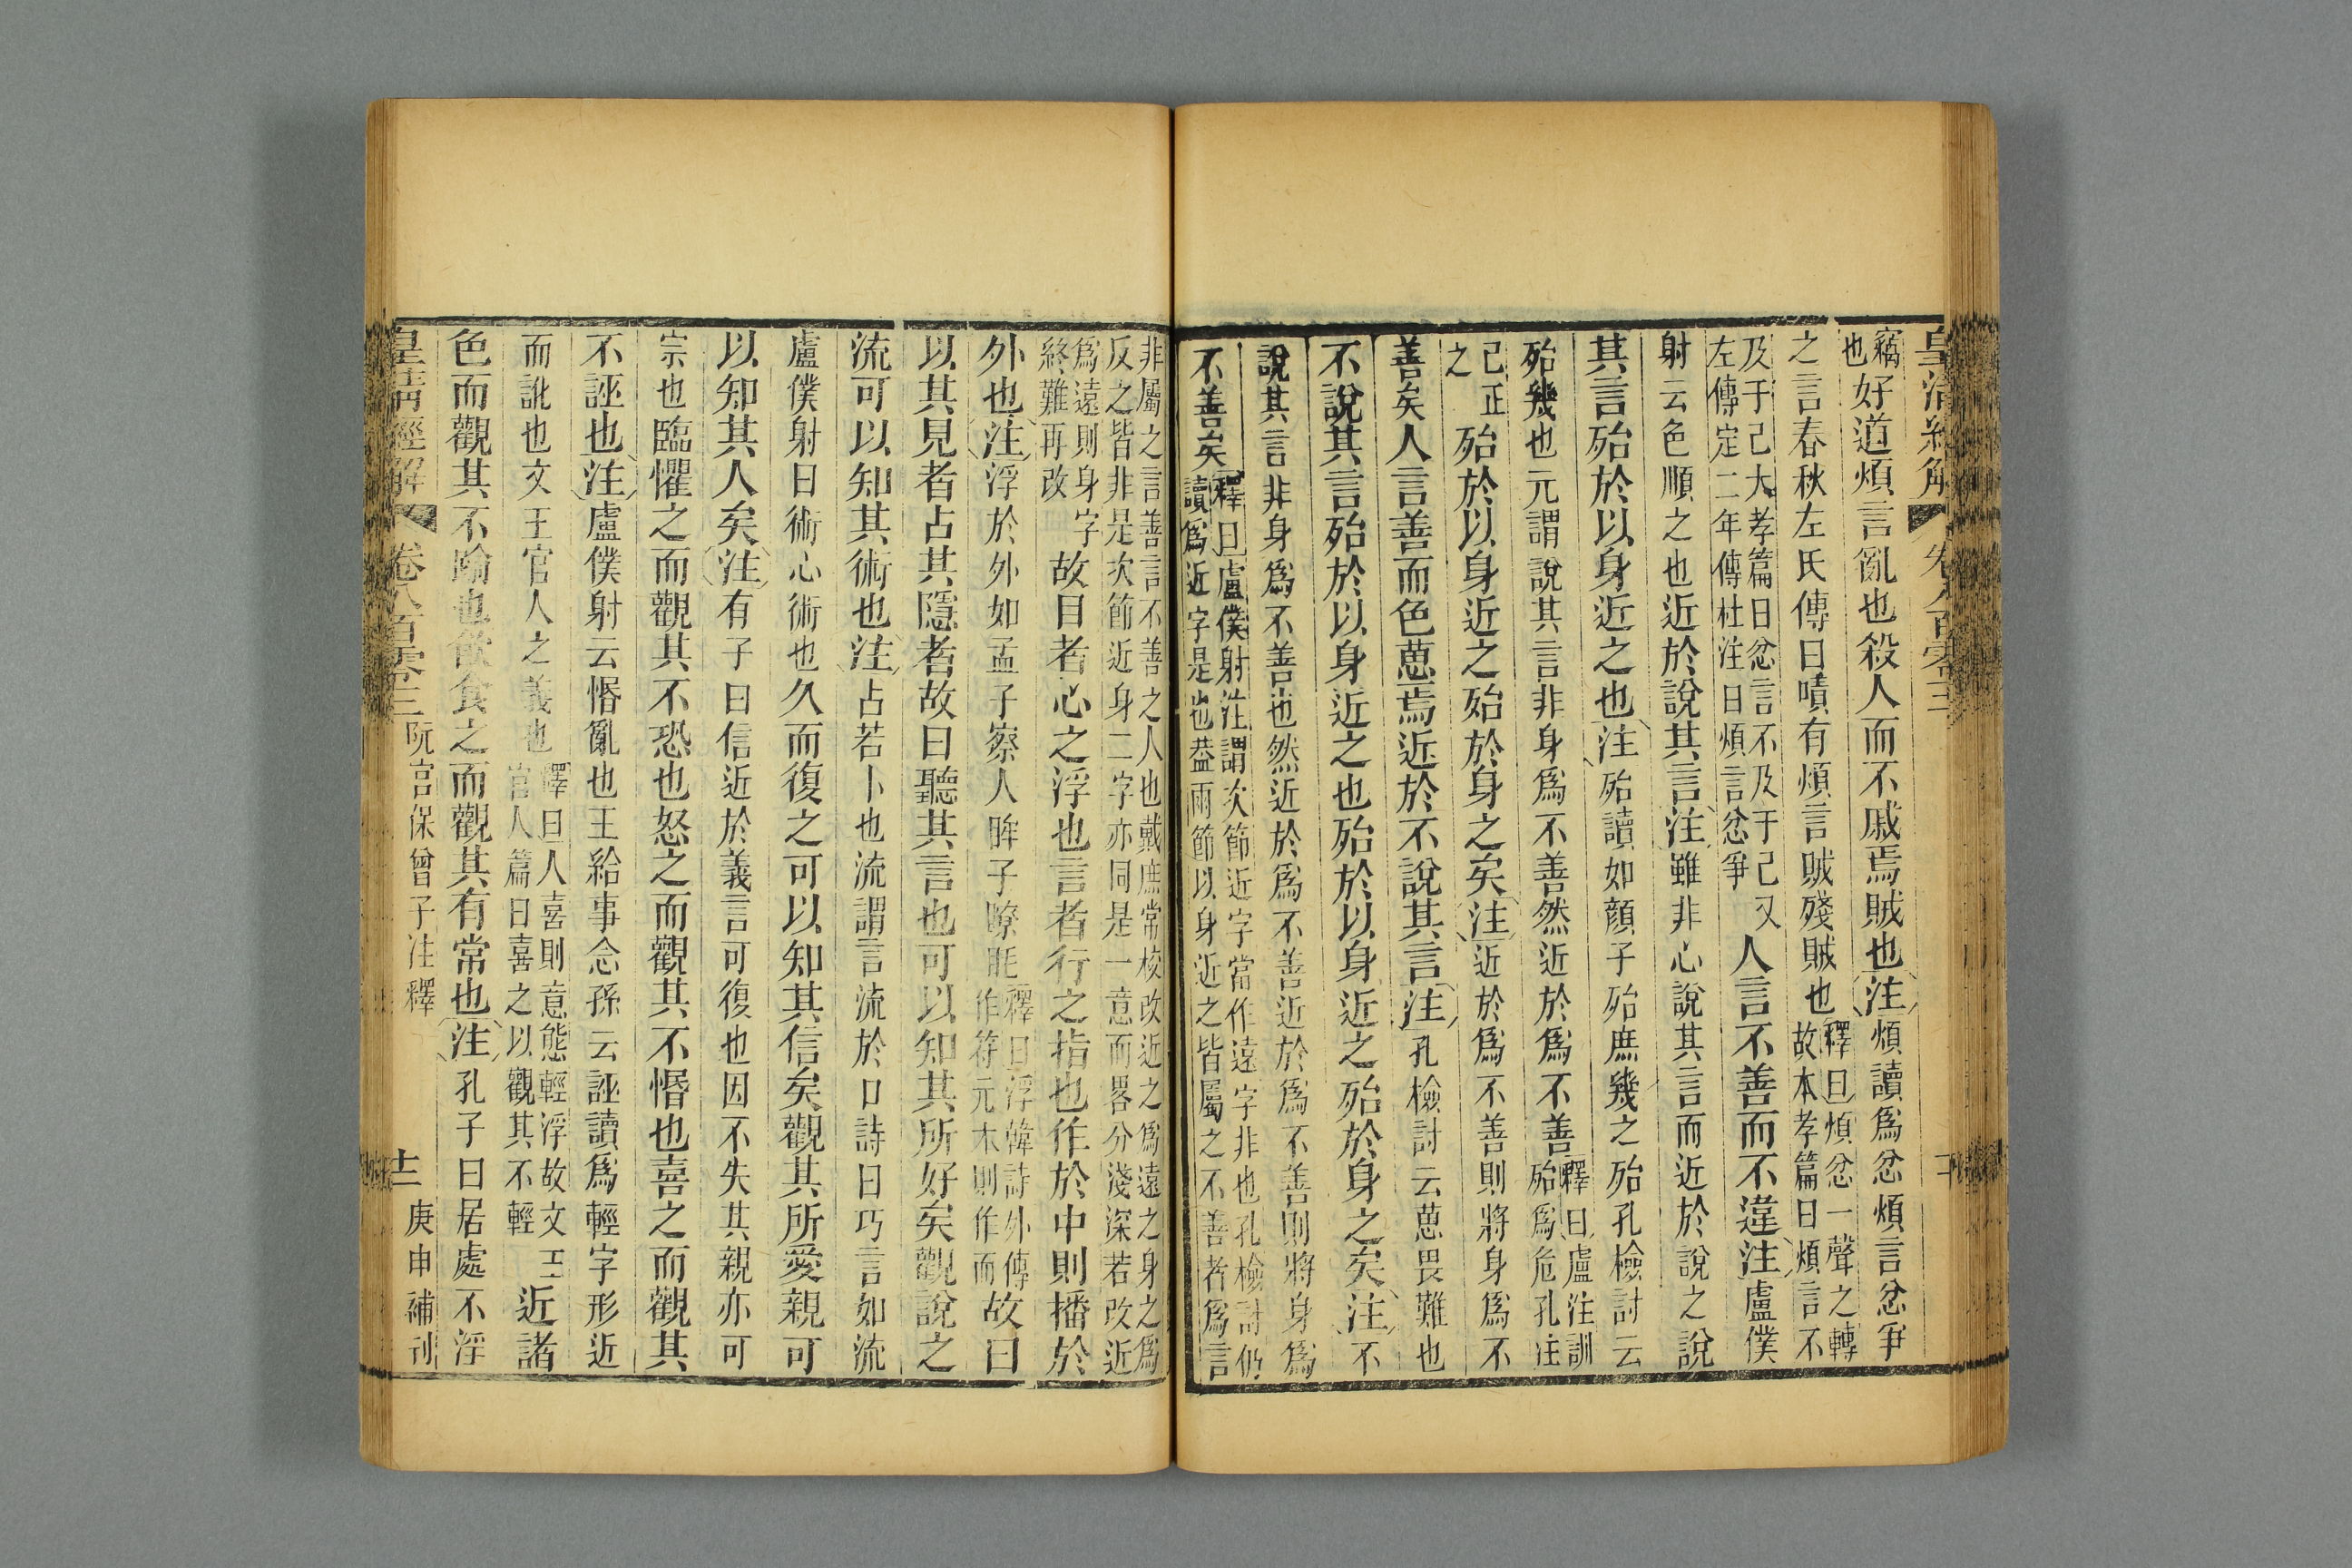 皇清經解 卷八百零三
竊也好道煩言亂也殺人而不戚焉賊也注煩讀爲忿煩言忿爭
之言春秋左氏傳曰嘖有煩言賊殘賊也釋曰煩忿一聲之轉故本孝篇曰煩言不
及于己大孝篇曰忿言不及于己又左傳定二年傳杜注曰煩言忿爭人言不善而不違注盧僕
射云色順之也近於說其言注雖非心說其言而近於說之說
其言殆於以身近之也注殆讀如顏子殆庶幾之殆孔檢討云
殆幾也元謂說其言非身爲不善然近於爲不善釋曰盧注訓殆爲危孔注
己正之殆於以身近之殆於身之矣注近於爲不善則將身爲不
善矣人言善而色葸焉近於不說其言注孔檢討云葸畏難也
不說其言殆於以身近之也殆於以身近之殆於身之矣注不
說其言非身爲不善也然近於爲不善近於爲不善則將身爲
不善矣釋曰盧僕射注謂次節近字當作遠字非也孔檢討仍讀爲近字是也葢兩節以身近之皆屬之不善者爲言
非屬之言善言不善之人也戴庶常校改近之爲遠之身之爲反之皆非是次節近身二字亦同是一意而畧分淺深若改近
爲遠則身字終難再改故目者心之浮也言者行之指也作於中則播於
外也注浮於外如孟子察人眸子瞭眊釋曰浮韓詩外傳作符元本則作而故曰
以其見者占其隱者故曰聽其言也可以知其所好矣觀說之
流可以知其術也注占若卜也流謂言流於口詩曰巧言如流
盧僕射曰術心術也久而復之可以知其信矣觀其所愛親可
以知其人矣注有子曰信近於義言可復也因不失其親亦可
宗也臨懼之而觀其不恐也怒之而觀其不惛也喜之而觀其
不誣也注盧僕射云惛亂也王給事念孫云誣讀爲輕字形近
而訛也文王官人之義也釋曰人喜則意態輕浮故文王官人篇曰喜之以觀其不輕近諸
色而觀其不踰也飲食之而觀其有常也注孔子曰居處不淫
皇清經解 卷八百零三 阮宮保曾子注釋 十二 庚申補刊